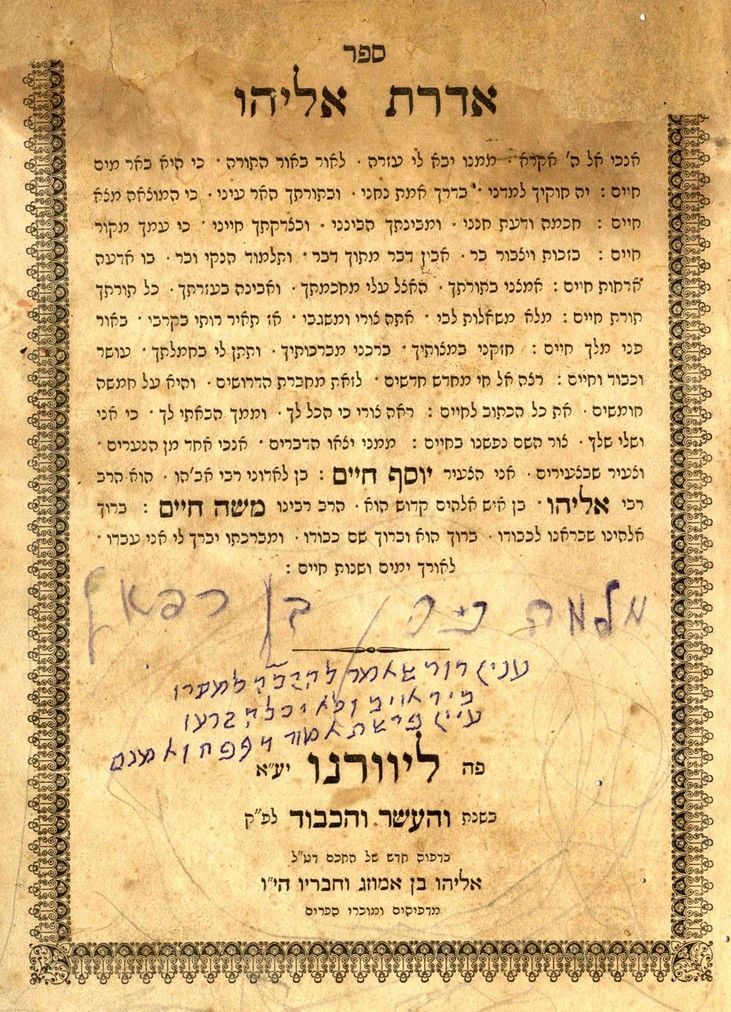 ספר
אדרת אליהו
אנכי אל ה' אקרא · ממנו יבא לי עזרה · לאור באור התורה · כי היא באר מים
חיים : יה חוקיך למדני · בדרך אמת נחני · ובתורתך האר עיני · כי המוצאה מצא
חיים : חכמה ודעת חנני · ומבינתך הבינני · ובצדקתך חייני · כי עמך מקור
חיים : בזכות ויצבור בר · אבין דבר מתוך דבר · ותלמוד הנקי ובר · בו אדעה
ארחות חיים : אמצני בתורתך · האצל עלי מחכמתך · ואבינה בעזרתך · כל תורתך
תורת חיים : מלא משאלות לבי · אתה צורי ומשגבי · אז תאיר רוחי בקרבי · באור
פני מלך חיים : חזקני במצותיך · ברכני מברכותיך · ותתן לי בחמלתך · עושר
וכבוד וחיים : רצה אל חי מחדש חדשים · לזאת מחברת הדרושים · והיא על חמשה
חומשים · את כל הכתוב לחיים : ראה צורי כי הכל לך · וממך הבאתי לך · כי אני
ושלי שלך · צור השם נפשנו בחיים : ממני יצאו הדברים · אנכי אחד מן הנערים ·
וצעיר שבצעירים · אני הצעיר יוסף חיים : בן לאדוני רבי אב'הו · הוא הרב
רבי אליהו · בן איש אלהים קדוש הוא · הרב רבינו משה חיים : ברוך
אלהינו שבראנו לכבודו · ברוך הוא וברוך שם כבודו · ומברכתו יברך לי אני עבדו ·
לאורך ימים ושנות חיים :
בן רפאל
פה ליוורנו יע"א
בשנת והעשר והכבוד לפ"ק
בדפוס חדש של החכם דע"ל
אליהו בן אמוזג וחבריו הי"ו
מדפיסים ומוכרי ספרים